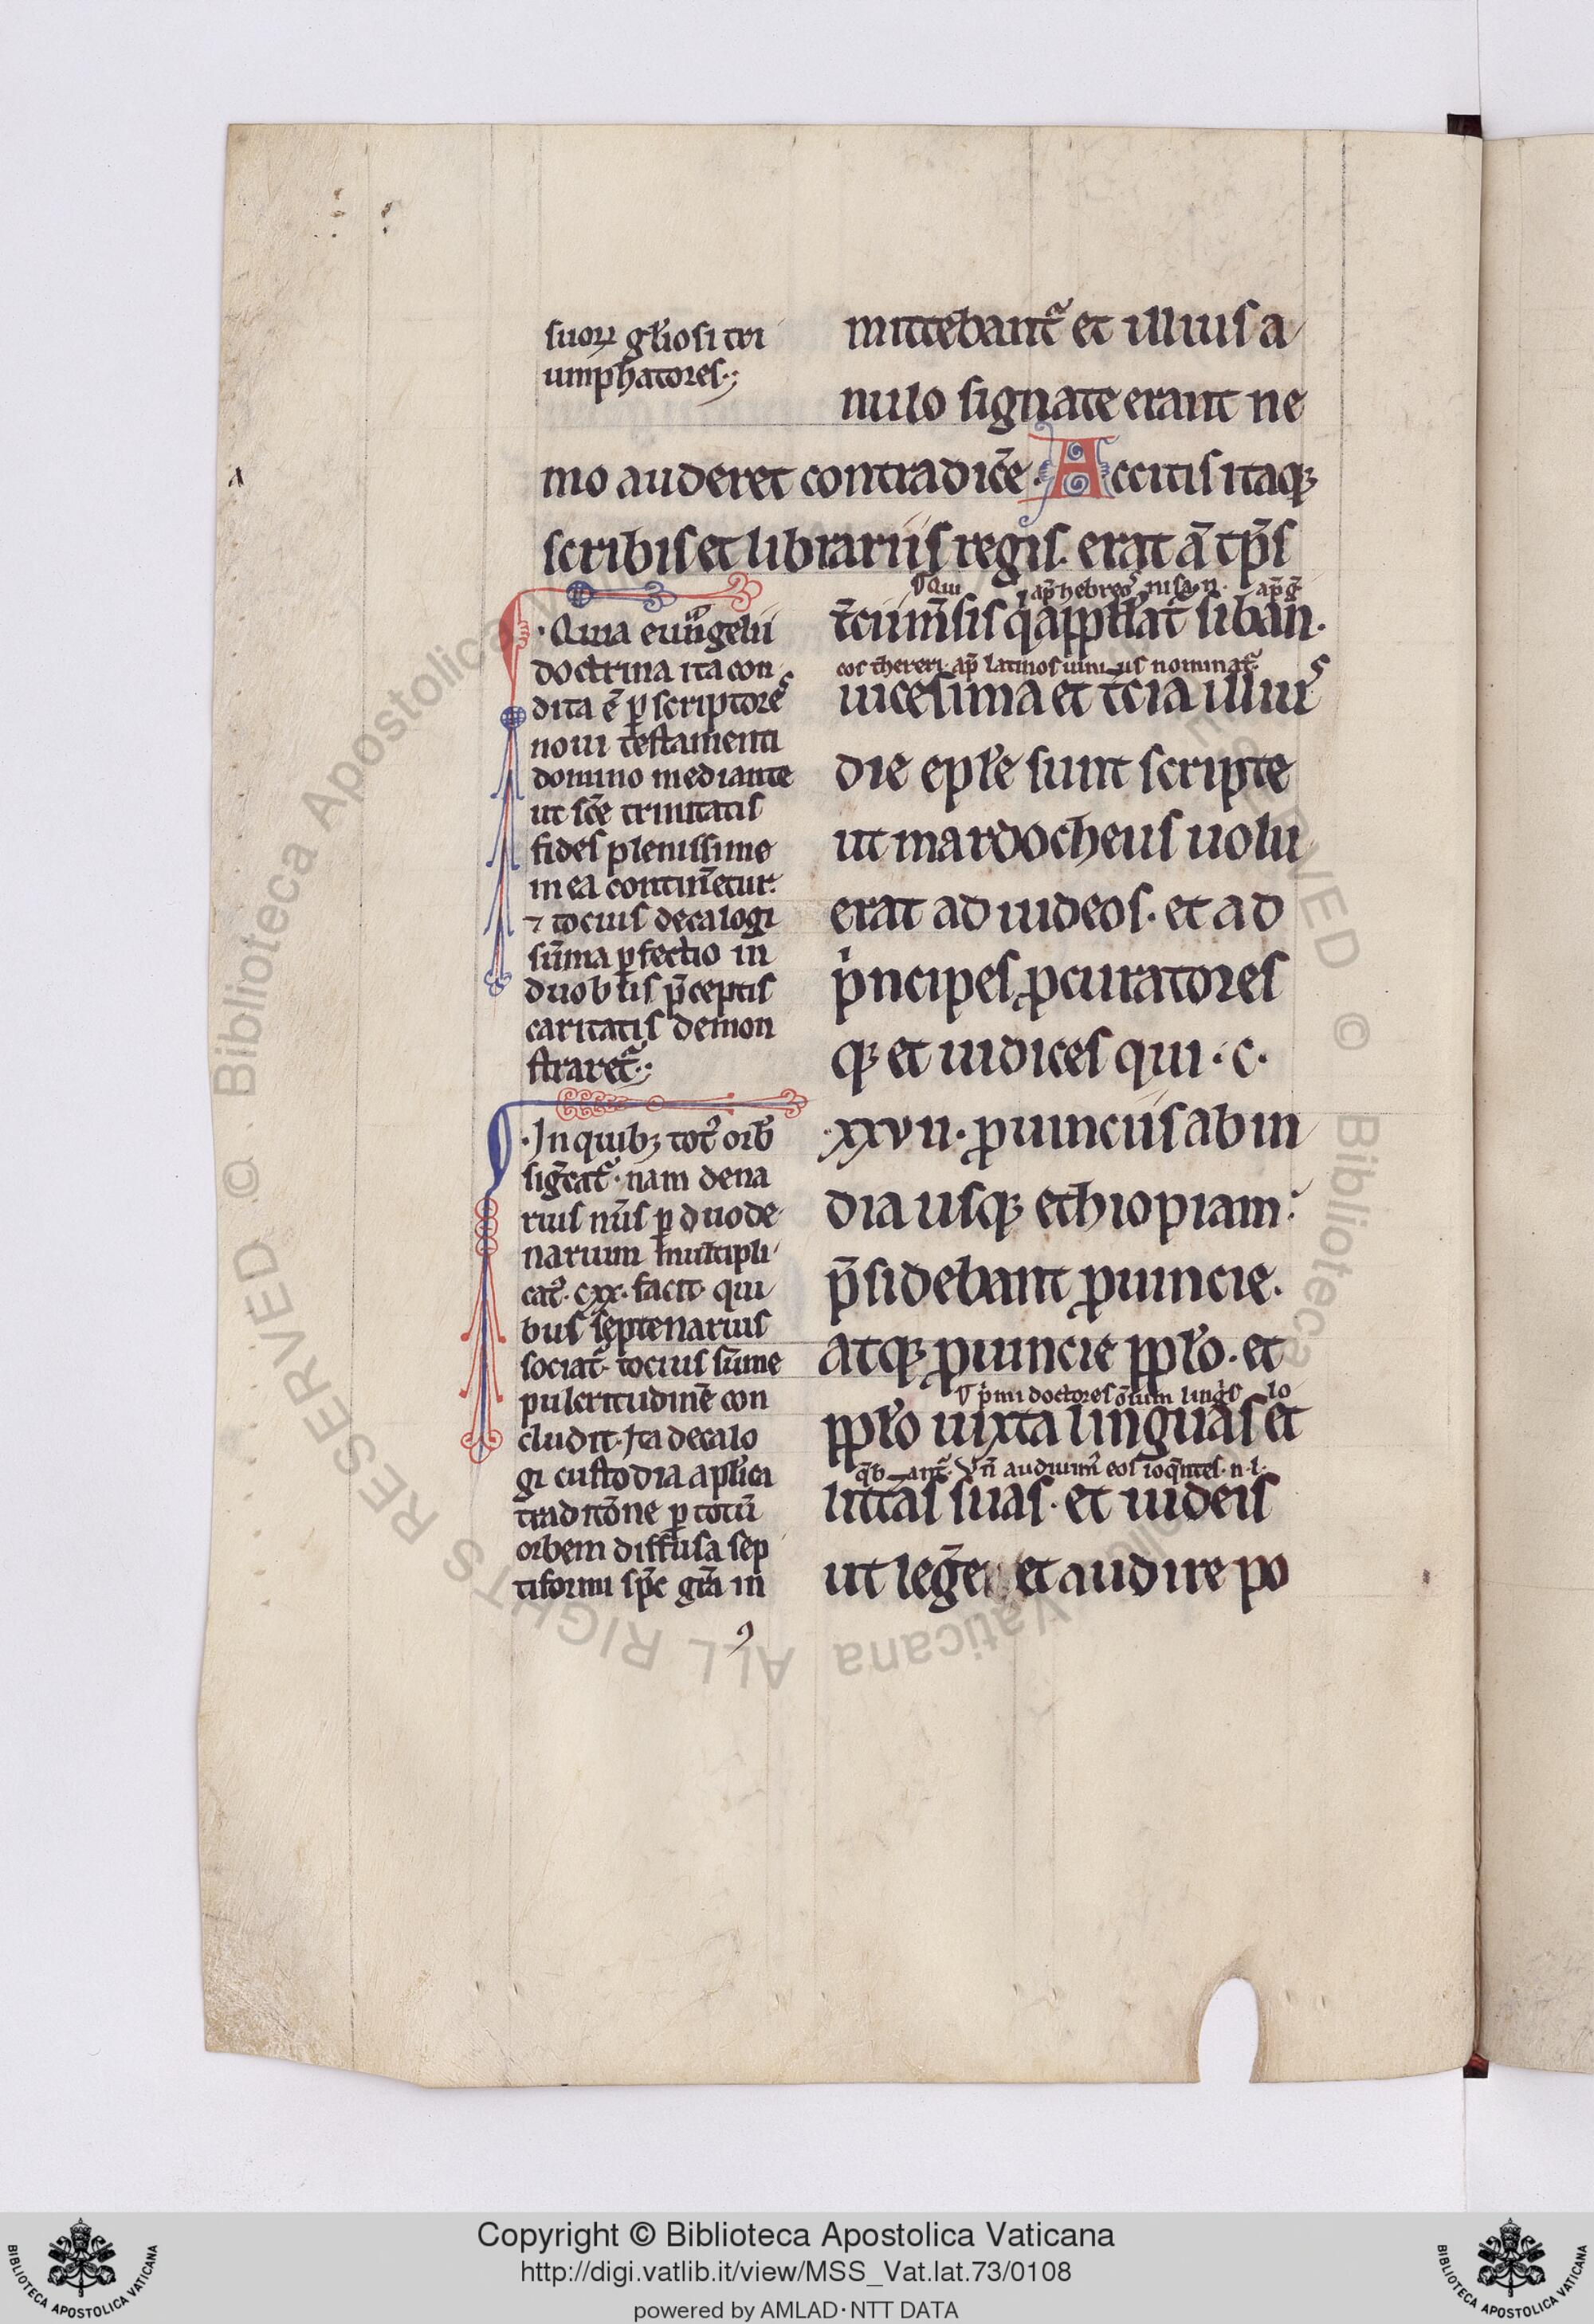 suoꝝ gl̃iosi tri
umph̃atores.
mittebant᷑ et illius a
nulo signate erant ne
mo auderet contradic̃e. Accitis itaq;
scribis et librariis regis. erat ã tp̃s
Qui ap̃ hebreos nisan. ap̃ g̃
t̃cii m̃sis q̃ appellat᷑ siban.
cos thereri. ap̃ latinos iuni us nominat᷑.
uicesima et t̃cia illius
die epl̃e sunt scripte
ut mardocheus uolu
erat ad iudeos. et ad
pⁱncipes ꝓcuratores
q; et iudices qui .c.
.xxvii. ꝓuinciis ab in
dia usq; ethiopiam
p̃sidebant ꝓuincie.
atq; ꝓuincie ppl̃o. et
pⁱmi doctores õium linguis lo
ppl̃o iuxta linguas et
q̃b ant᷑. Vñ audiuim᷒ eos loq̃ntes .n.l.
litt̃as suas. et iudeis
ut leg̃e et audire po
.Quia euuangelii
doctrina ita con
dita ẽ ꝑ scriptores
noui testamenti
domino mediante
ut sc̃e trinitatis
fides plenissime
in ea contin̄etur.
⁊ tocius decalogi
sũma ꝑfectio in
duobus p̃ceptis
caritatis demon
straret᷑.
.In quib; tot᷒ orb̃
sig̃cat᷑. nam dena
rius nũs ꝑ duode
narium multipli
cat᷒. cxx. facit. qui
bus septenarius
sociat᷒. tocius sũme
pulcritudinẽ con
cludit. Ita decalo
gi custodia apl̃ica
traditõne ꝑ totũ
orbem diffusa sep
tiformi sp̃c gr̃a in
Copyright © Biblioteca Apostolica Vaticana
http://digi.vatlib.it/view/MSS_Vat.lat.73/0108
powered by AMLAD·NTT DATA
BIBLIOTECA APOSTOLICA VATICANA
BIBLIOTECA APOSTOLICA VATICANA